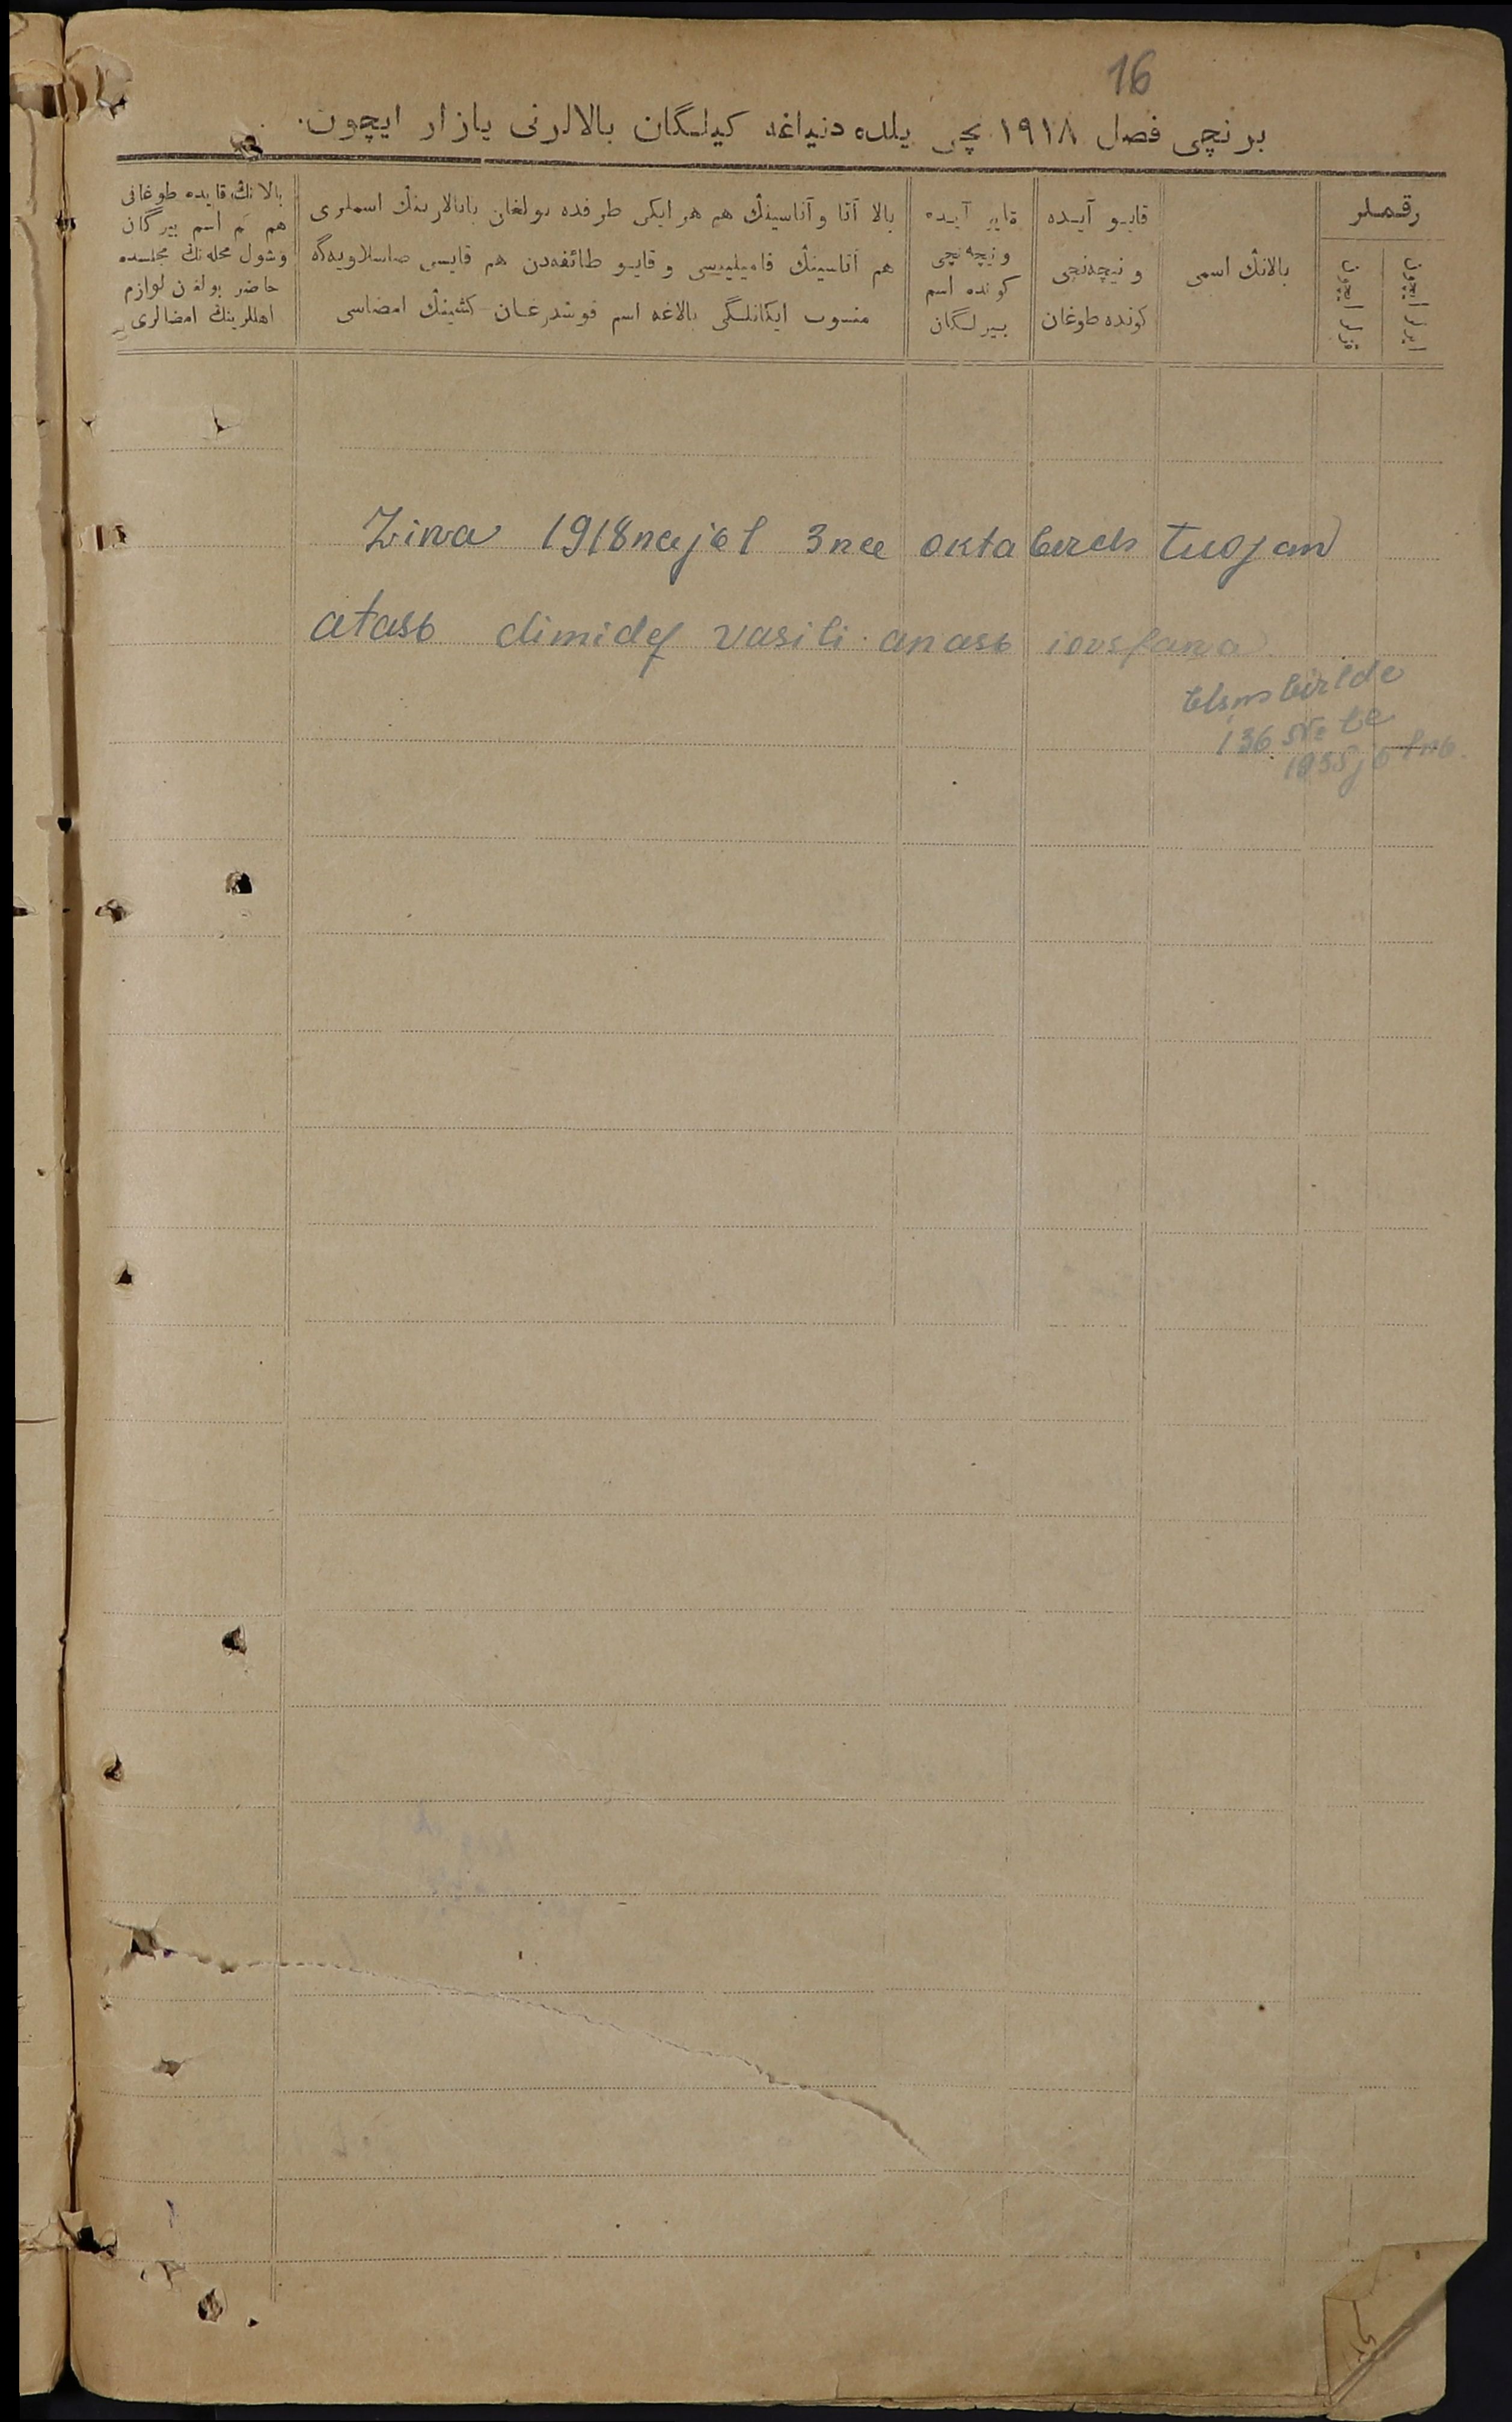 16
برنچی فصل ١٩١٨ نچی یلده دنیاغه کیلگان بالالرنی یازار ایچون.
رقملر
ایرلر ایچون
قزلر ایچون
بالانڭ اسمی
قایو آیده
و نیچهنچی
کونده طوغان
قایو آیده
و نیچهنچی
کونده اسم
بیرلگان
بالا آتا و آناسینڭ هم هر ایکی طرفده بولغان بابالارینڭ اسملری
هم آتاسینڭ فامیلییسی و قایو طائفهدن هم قایسی صاسلاویهگه
منسوب ایکانلگی بالاغه اسم قوشدرغان کشینڭ امضاسی
بالانڭ قایده طوغانی
هم کم اسم بیرگان
وشول محلهنڭ مجلسده
حاضر بولغان لوازم
اهللرینڭ امضالری
Zina 1918neejьl 3nee oktaberdь tuojan
atasь dimidef vasili anasь
birlde
136 №
1935 jьlnь